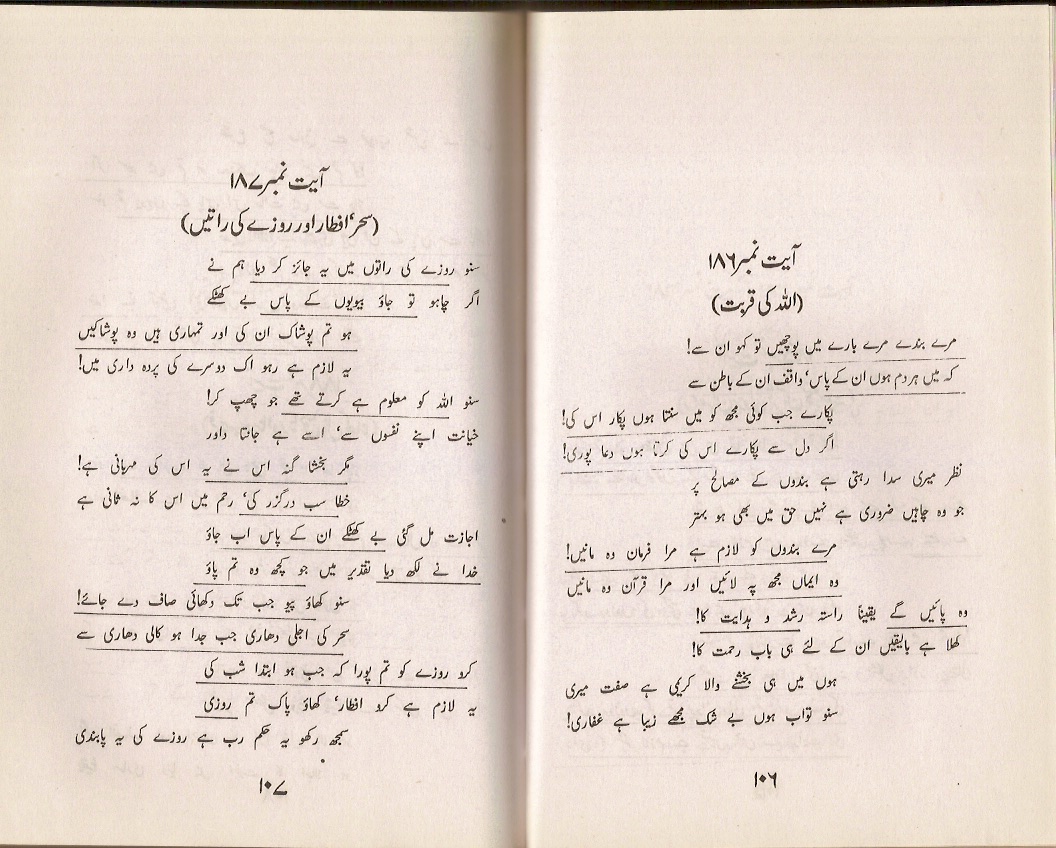 آیت نمبر ۱۸۶
(اللہ کی قربت)
مرے بندے مرے بارے میں پوچھیں تو کہو ان سے!
کہ میں ہر دم ہوں ان کے پاس‘ واقف ان کے باطن سے
پکارے جب کوئی مجھ کو میں سنتا ہوں پکار اس کی!
اگر دل سے پکارے اس کی کرتا ہوں دعا پوری!
نظر میری سدا رہتی ہے بندوں کے مصالح پر
جو وہ چاہیں ضروری ہے نہیں حق میں بھی ہو بہتر
مرے بندوں کو لازم ہے مرا فرمان وہ مانیں!
وہ ایماں مجھ پہ لائیں اور مرا قرآن وہ مانیں
وہ پائیں گے یقیناً راستہ رشد و ہدایت کا!
کھلا ہے بالیقیں ان کے لئے ہی باب رحمت کا!
ہوں میں ہی بخشنے والا کریمی ہے صفت میری
سنو تواب ہوں بے شک مجھے زیبا ہے غفاری!
۱۰۶
آیت نمبر ۱۸۷
(سحر‘ افطار اور روزے کی راتیں)
سنو روزے کی راتوں میں یہ جائز کر دیا ہم نے
اگر چاہو تو جاؤ بیویوں کے پاس بے کھٹکے
ہو تم پوشاک ان کی اور تمہاری ہیں وہ پوشاکیں
یہ لازم ہے رہو اک دوسرے کی پردہ داری میں!
سنو اللہ کو معلوم ہے کرتے تھے جو چھپ کر!
خیانت اپنے نفسوں سے‘ اسے ہے جانتا داور
مگر بخشا گنہ اس نے یہ اس کی مہربانی ہے!
خطا سب درگزر کی‘ رحم میں اس کا نہ ثانی ہے
اجازت مل گئی بے کھٹکے ان کے پاس اب جاؤ
خدا نے لکھ دیا تقدیر میں جو کچھ وہ تم پاؤ
سنو کھاؤ پیو جب تک دکھائی صاف دے جائے!
سحر کی اجلی دھاری جب جدا ہو کالی دھاری سے
کرو روزے کو تم پورا کہ جب ہو ابتدا شب کی
یہ لازم ہے کرو افطار‘ کھاؤ پاک تم روزی
سمجھ رکھو یہ حکم رب ہے روزے کی یہ پابندی
۱۰۷